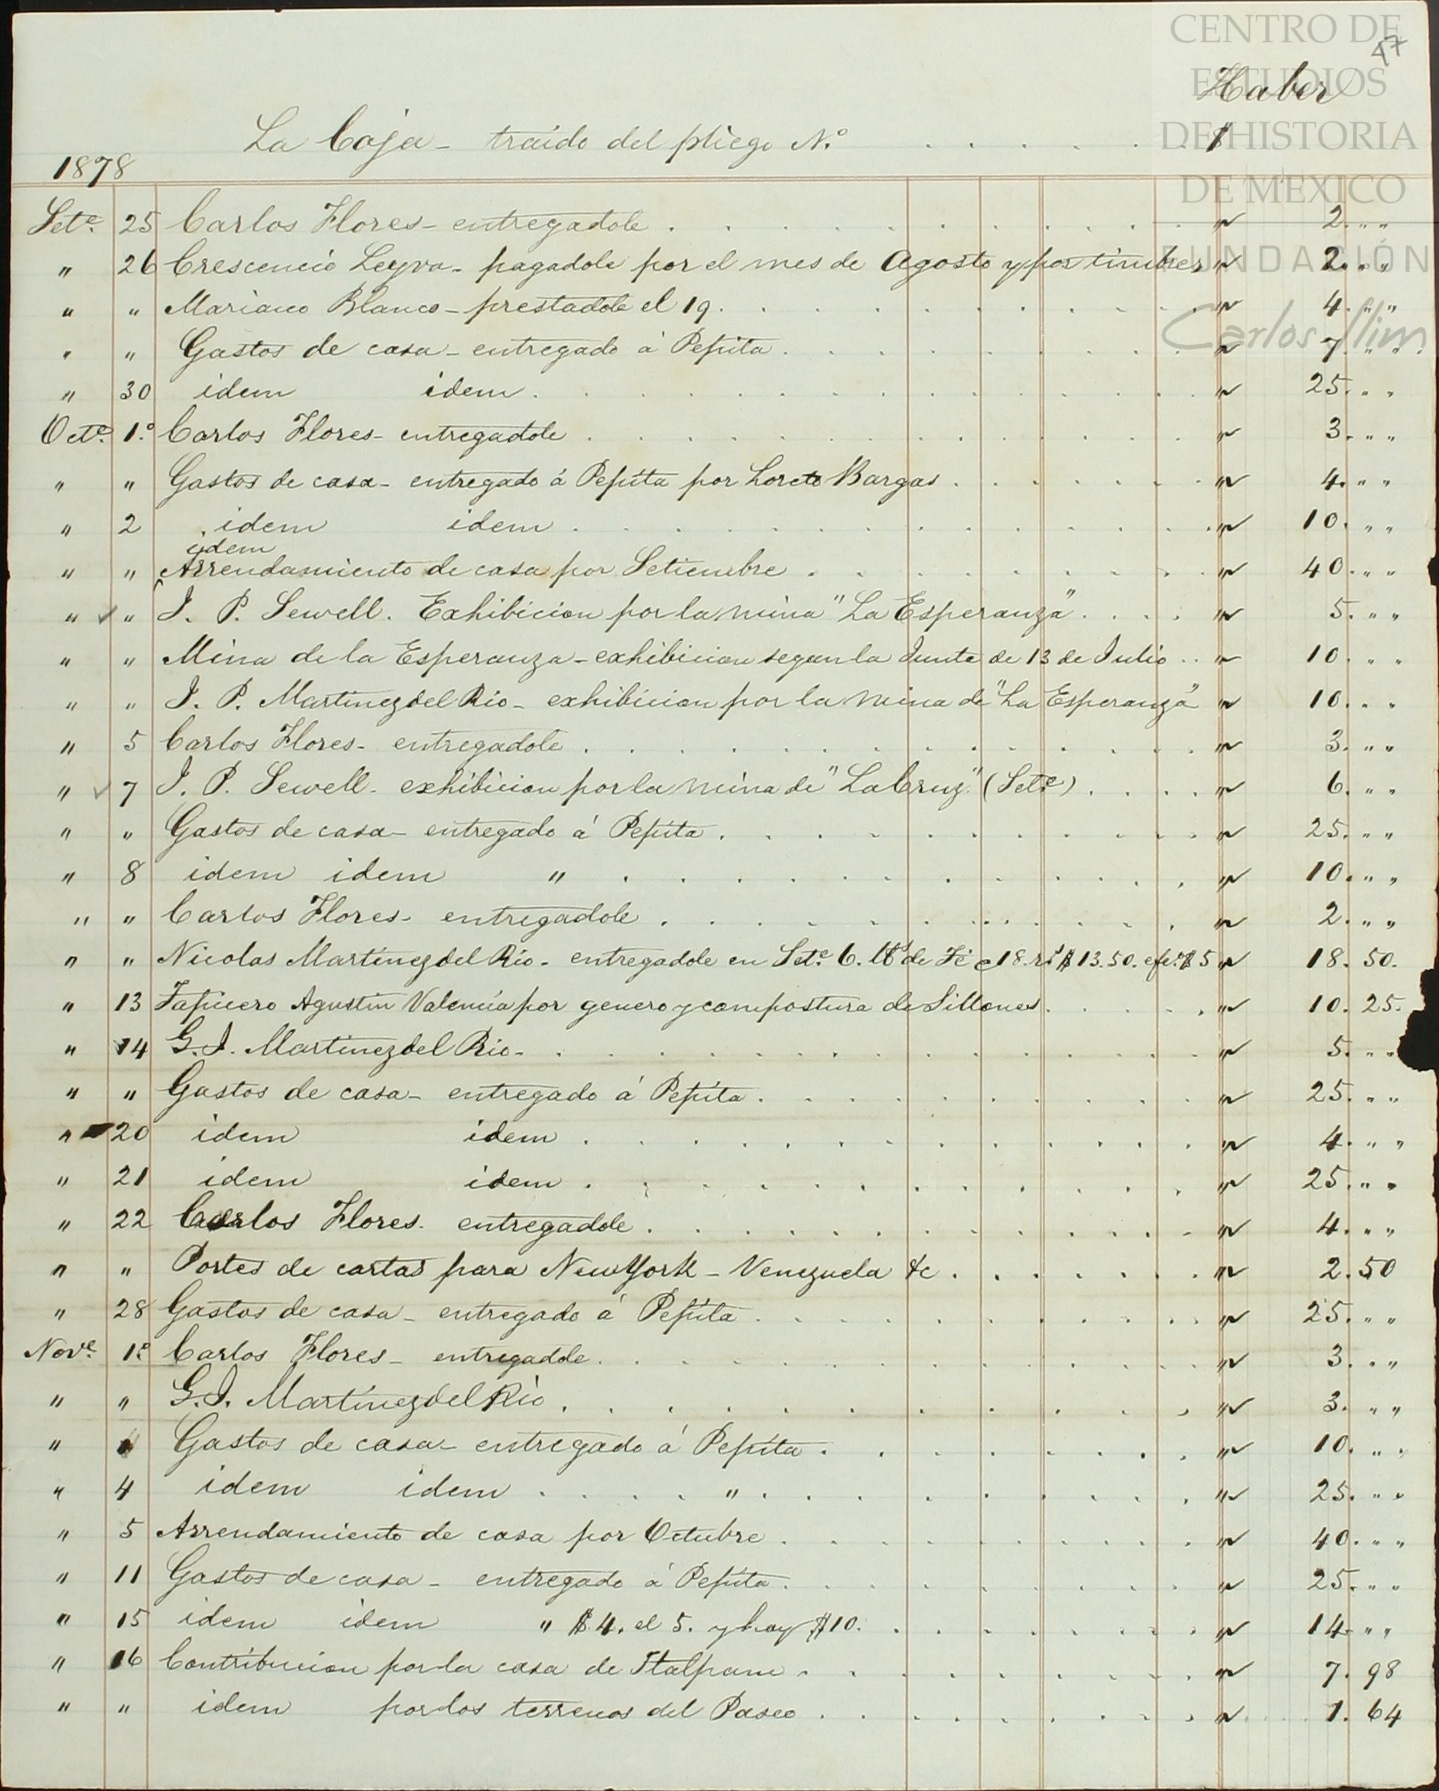 CENTRO DE
ESTUDIOS
DE HISTORIA
DE MEXICO
FUNDACIÓN
Carlos Slim
47
Haber
La Caja - traido del pliego N.º . . . . . . 1
1878
Set.e 25 Carlos Flores - entregadole . . . . . . " 2. " "
" 26 Crescencio Leyva - pagadole por el mes de Agosto y por timbres " 2. " "
" " Mariano Blanco - prestadole el 19 . . . . . . " 4. " "
" " Gastos de casa - entregado á Pepita . . . . . . " 7. " "
" 30 idem idem . . . . . . " 25. " "
Oct.e 1.º Carlos Flores - entregadole . . . . . . " 3. " "
" " Gastos de casa - entregado á Pepita por Loreto Bargas . . . . . . " 4. " "
" 2 idem idem . . . . . . " 10. " "
idem
" " Arrendamiento de casa por Setiembre . . . . . . " 40. " "
" ✓ " J. P. Sewell. Exhibicion por la mina "La Esperanza" . . . . " 5. " "
" " Mina de la Esperanza - exhibicion segun la Junta de 13 de Julio . . " 10. " "
" " J. P. Martinez del Rio - exhibicion por la mina de "La Esperanza" " 10. " "
" 5 Carlos Flores - entregadole . . . . . . " 3. " "
" ✓ 7 J. P. Sewell - exhibicion por la mina de "La Cruz" (Set.e) . . . . " 6. " "
" " Gastos de casa - entregado á Pepita . . . . . . " 25. " "
" 8 idem idem " . . . . . . " 10. " "
" " Carlos Flores - entregadole . . . . . . " 2. " "
" " Nicolas Martinez del Rio - entregadole en Set.e 6. de Fé 18. $13.50. $5 " 18. 50.
" 13 Tapicero Agustin Valencia por genero y compostura de Sillones . . . . . " 10. 25.
" 14 G. I. Martinez del Rio - . . . . . . " 5. " "
" " Gastos de casa - entregado á Pepita . . . . . . " 25. " "
" 20 idem idem . . . . . . " 4. " "
" 21 idem idem . . . . . . " 25. " "
" 22 Carlos Flores. entregadole . . . . . . " 4. " "
" " Portes de cartas para New York - Venezuela &c . . . . . . " 2. 50
" 28 Gastos de casa - entregado á Pepita . . . . . . " 25. " "
Nov.e 1.º Carlos Flores - entregadole . . . . . . " 3. " "
" " G. I. Martinez del Rio . . . . . . " 3. " "
" " Gastos de casa - entregado á Pepita . . . . . . " 10. " "
" 4 idem idem . . . . " . . . . . . " 25. " "
" 5 Arrendamiento de casa por Octubre . . . . . . " 40. " "
" 11 Gastos de casa - entregado á Pepita . . . . . . " 25. " "
" 15 idem idem " $4. el 5. y hoy $10. . . . . . . " 14. " "
" 16 Contribucion por la casa de Tlalpam . . . . . . " 7. 98
" " idem por los terrenos del Paseo . . . . . . " 1. 64